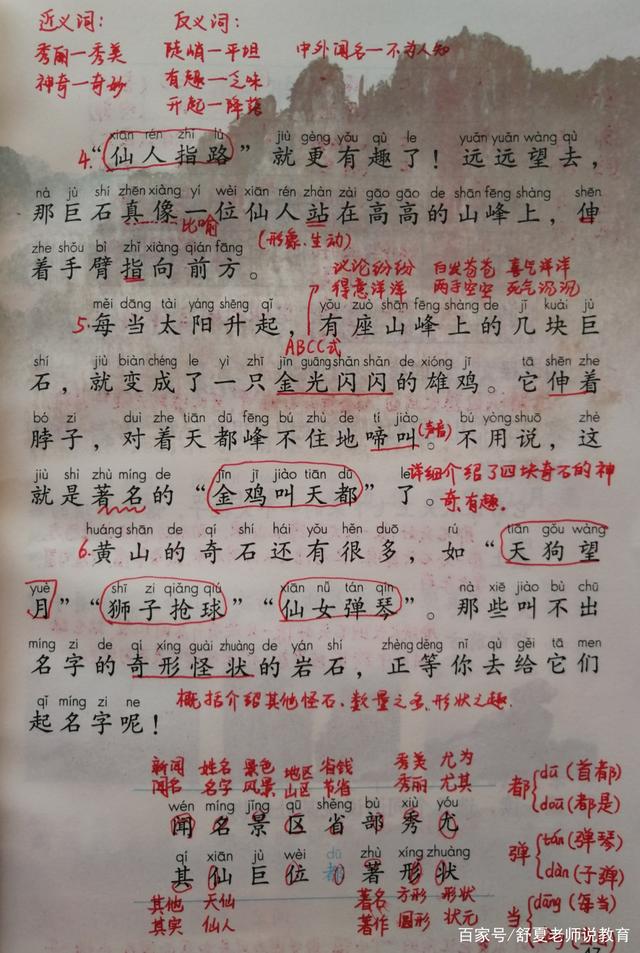 近义词： 反义词：
秀丽—秀美 陡峭—平坦 中外闻名—不为人知
神奇—奇妙 有趣—乏味
升起—降落
xiān rén zhǐ lù jiù gèng yǒu qù le yuǎn yuǎn wàng qù
4.“仙人指路”就更有趣了！远远望去，
nà jù shí zhēn xiàng yí wèi xiān rén zhàn zài gāo gāo de shān fēng shàng shēn
那巨石真像一位仙人站在高高的山峰上，伸
比喻 (形象、生动)
zhe shǒu bì zhǐ xiàng qián fāng
着手臂指向前方。
议论纷纷 白发苍苍 喜气洋洋
得意洋洋 两手空空 死气沉沉
měi dāng tài yáng shēng qǐ yǒu zuò shān fēng shàng de jǐ kuài jù
5.每当太阳升起，有座山峰上的几块巨
ABCC式
shí jiù biàn chéng le yì zhī jīn guāng shǎn shǎn de xióng jī tā shēn zhe
石，就变成了一只金光闪闪的雄鸡。它伸着
bó zi duì zhe tiān dū fēng bú zhù de tí jiào bú yòng shuō zhè
脖子，对着天都峰不住地啼叫。(声音)不用说，这
jiù shì zhù míng de jīn jī jiào tiān dū le
就是著名的“金鸡叫天都”了。
详细介绍了四块奇石的神
奇、有趣。
huáng shān de qí shí hái yǒu hěn duō rú tiān gǒu wàng
6.黄山的奇石还有很多，如“天狗望
yuè shī zi qiǎng qiú xiān nǚ tán qín nà xiē jiào bù chū
月”“狮子抢球”“仙女弹琴”。那些叫不出
míng zi de qí xíng guài zhuàng de yán shí zhèng děng nǐ qù gěi tā men
名字的奇形怪状的岩石，正等你去给它们
qǐ míng zi ne
起名字呢！
概括介绍其他怪石、数量之多、形状之趣.
新闻 姓名 景色 地区 省钱 秀美 尤为
闻名 名字 风景 山区 节省 秀丽 尤其
wén míng jǐng qū shěng bù xiù yóu
闻名景区省部秀尤
qí xiān jù wèi dū zhù xíng zhuàng
其仙巨位都著形状
其他 天仙 著名 方形 形状
其实 仙人 著作 圆形 状元
都 dū (首都)
dōu (都是)
弹 tán (弹琴)
dàn (子弹)
当 dāng (每当)
百家号/舒夏老师说教育